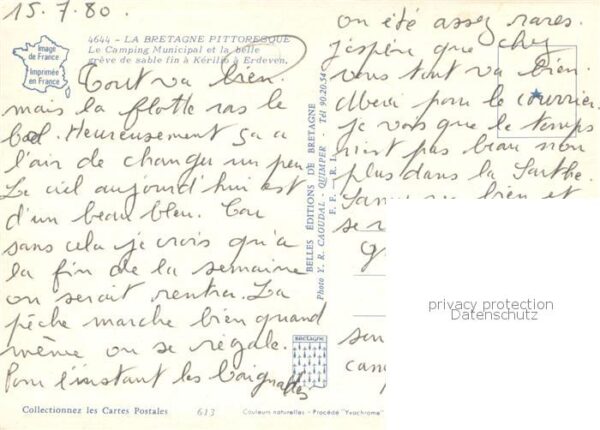 15.7.80.
Image
de France
Imprimée
en France
4644 - LA BRETAGNE PITTORESQUE
Le Camping Municipal et la belle
grève de sable fin à Kérilio à Erdeven.
Tout va bien.
mais la flotte ras le
bol. Heureusement ça a
l'air de changer un peu
Le ciel aujourd'hui est
d'un beau bleu. Car
sans cela je crois qu'à
la fin de la semaine
on serait rentré. La
pêche marche bien quand
même on se régale.
Pour l'instant les baignades
on été assez rares.
j'espère que chez
vous tout va bien.
Merci pour le courrier.
je vois que le temps
n'est pas beau non
plus dans la Sarthe.
bien et
se r
son
BELLES ÉDITIONS DE BRETAGNE
Photo Y. R. CAOUDAL - QUIMPER - Tél 90.20.54
F. F. - R. I.
BRETAGNE
privacy protection
Datenschutz
Collectionnez les Cartes Postales
613
Couleurs naturelles - Procédé "Yvachrome"